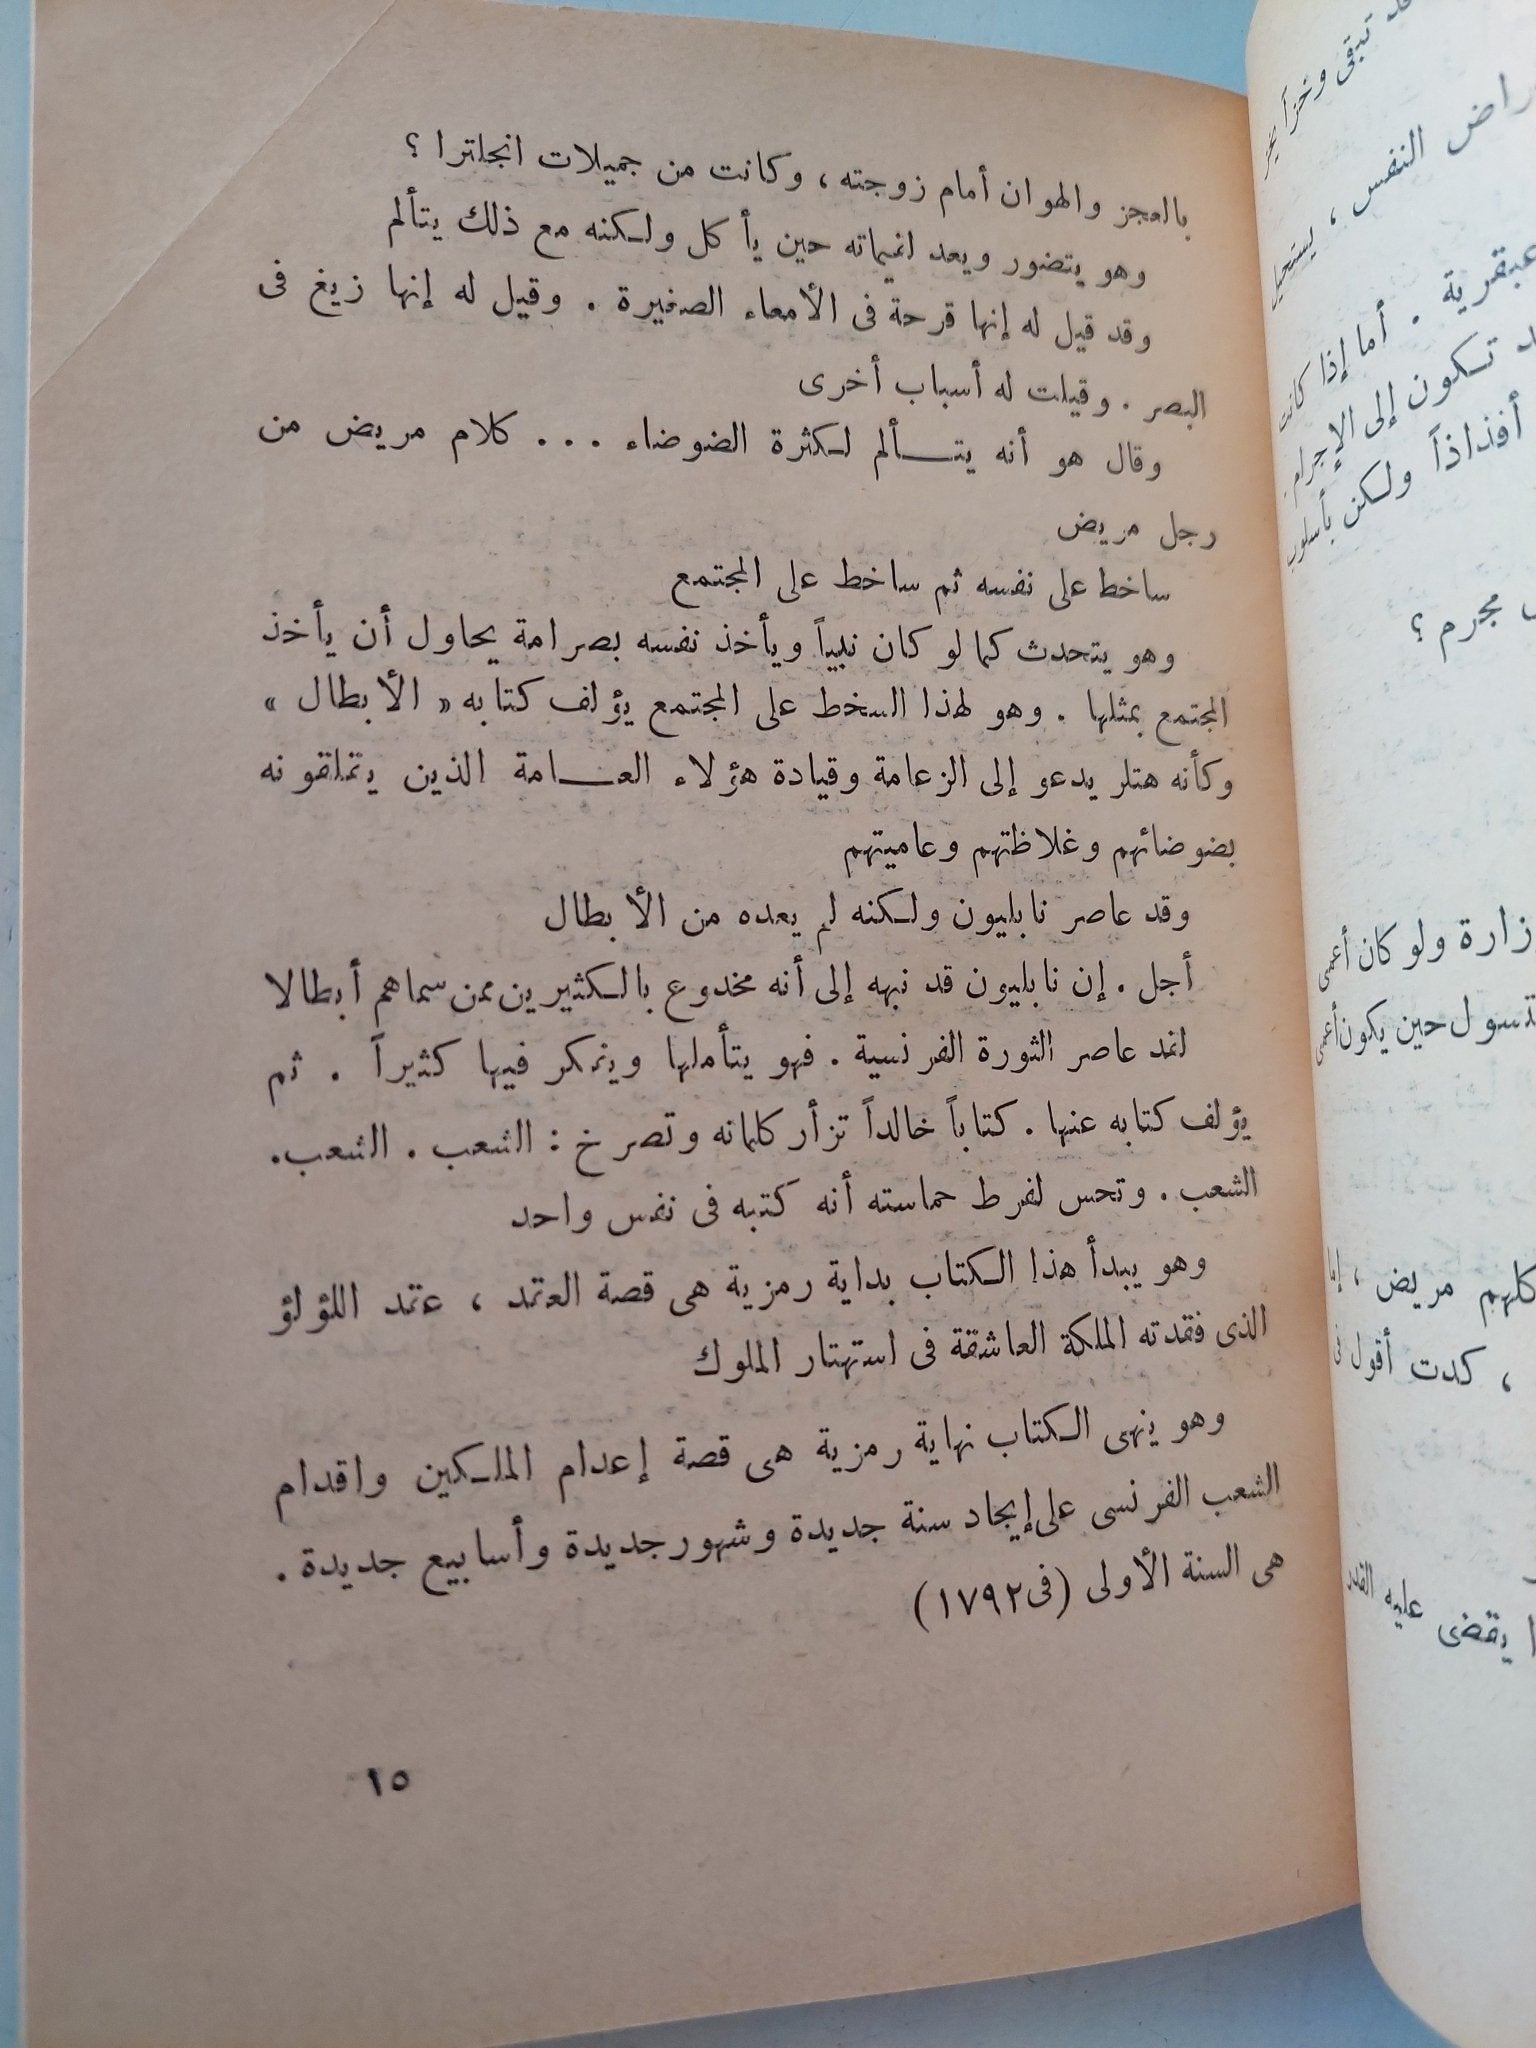 بالعجز والهوان أمام زوجته ، وكانت من جميلات انجلترا ؟
وهو يتضور ويعد لقيماته حين يأكل ولكنه مع ذلك يتألم
وقد قيل له إنها قرحة فى الأمعاء الصغيرة . وقيل له إنها زيغ فى
البصر . وقيلت له أسباب أخرى
وقال هو أنه يتـــألم لكثرة الضوضاء ... كلام مريض من
رجل مريض
ساخط على نفسه ثم ساخط على المجتمع
وهو يتحدث كما لو كان نبياً ويأخذ نفسه بصرامة يحاول أن يأخذ
المجتمع بمثلها . وهو لهذا السخط على المجتمع يؤلف كتابه « الأبطال »
وكأنه هتلر يدعو إلى الزعامة وقيادة هؤلاء العـــامة الذين يتملقونه
بضوضائهم وغلاظتهم وعاميتهم
وقد عاصر نابليون ولكنه لم يعده من الأبطال
أجل . إن نابليون قد نبهه إلى أنه مخدوع بالكثيرين ممن سماهم أبطالا
لقد عاصر الثورة الفرنسية . فهو يتأملها ويفكر فيها كثيراً . ثم
يؤلف كتابه عنها . كتاباً خالداً تزأر كلماته وتصرخ : الشعب . الشعب.
الشعب . وتحس لفرط حماسته أنه كتبه فى نفس واحد
وهو يبدأ هذا الكتاب بداية رمزية هى قصة العقد ، عقد اللؤلؤ
الذى فقدته الملكة العاشقة فى استهتار الملوك
وهو ينهى الكتاب نهاية رمزية هى قصة إعدام الملكين واقدام
الشعب الفرنسى على إيجاد سنة جديدة وشهور جديدة وأسابيع جديدة .
هى السنة الأولى (فى ١٧٩٢)
١٥
راض النفس ، يستحيل
عبقرية . أما إذا كانت
تكون إلى الإجرام
أفذاذاً ولكن بأسلوب
مجرم ؟
زارة ولو كان أعمى
تسول حين يكون أعمى
كلهم مريض ، إما
، كدت أقول فى
يقضى عليه القدر